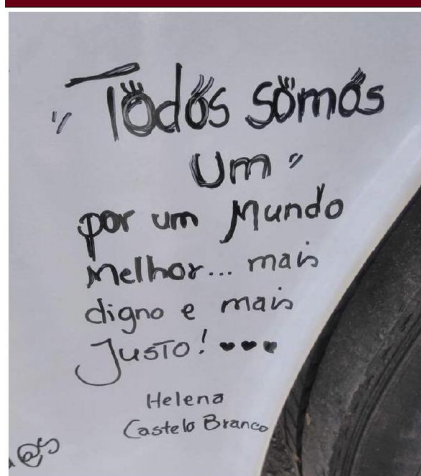 "Todos somos
Um"
por um Mundo
Melhor... mais
digno e mais
Justo! ♥♥♥
Helena
Castelo Branco